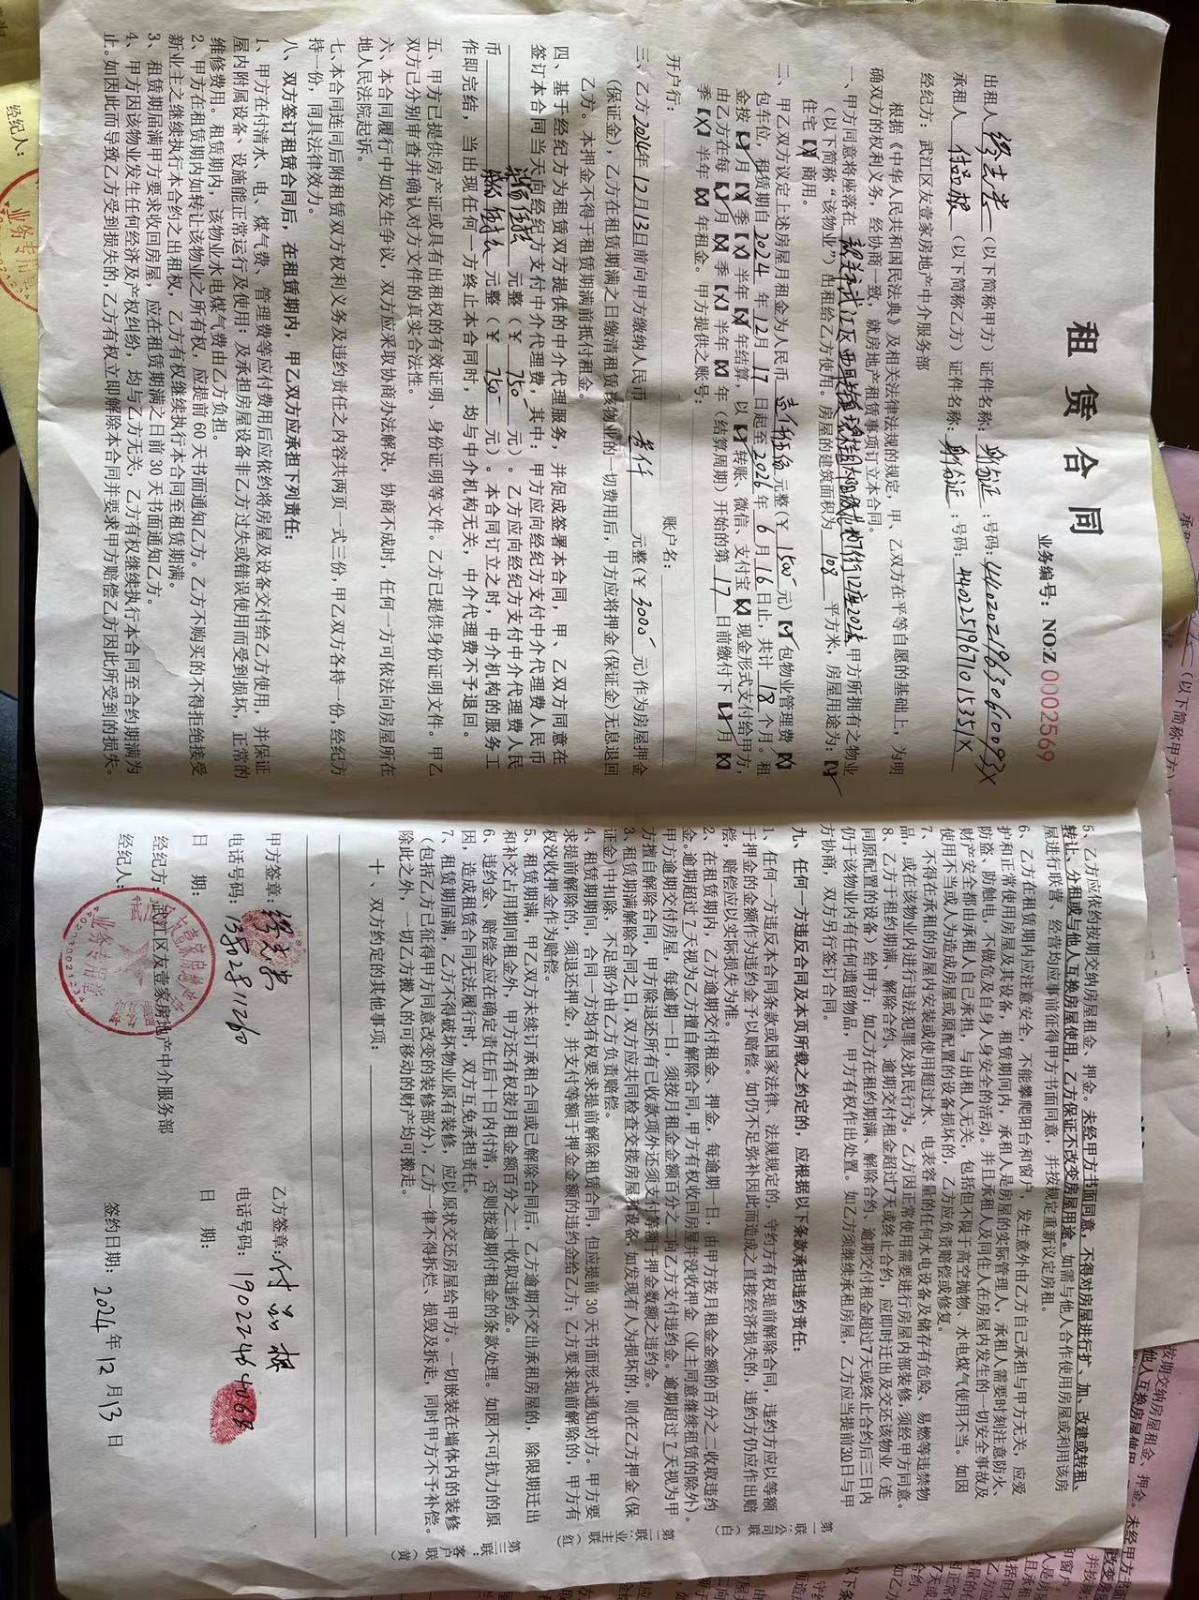 租赁合同
业务编号：NO:Z 0002569
出租人 （以下简称甲方）证件名称：身份证 ；号码：44020219630610093X
承租人 付品根 （以下简称乙方）证件名称：身份证 ；号码：44022519671015351X
经纪方：武江区友壹家房地产中介服务部
根据《中华人民共和国民法典》及相关法律法规的规定，甲、乙双方在平等自愿的基础上，为明
确双方的权利义务，经协商一致，就房地产租赁事项订立本合同。
一、甲方同意将座落在 韶关市武江区 甲方所拥有之物业
（以下简称“该物业”）出租给乙方使用。房屋的建筑面积为 108 平方米，房屋用途为：【√】
住宅【X】商用。
二、甲乙双方议定上述房屋月租金为人民币 壹仟伍佰 元整（￥ 1500 元）【√】包物业管理费【X】
包车位，租赁期自 2024 年 12 月 17 日起至 2026 年 6 月 16 日止，共计 18 个月。租
金按【√】月【X】季【X】半年【X】年结算，以【√】转账、微信、支付宝【X】现金形式支付给甲方，
由乙方在每【√】月【X】季【X】半年【X】年（结算周期）开始的第 17 日前缴付下【√】月【X】
季【X】半年【X】年租金。甲方提供之账号：
开户行： 账户名：
三、乙方2024年12月13日前向甲方缴纳人民币 叁仟 元整（￥ 3000 元）作为房屋押金
（保证金），乙方在租赁期满之日缴清租赁该物业的一切费用后，甲方应将押金（保证金）无息退回
乙方。本押金不得于租赁期满前抵付租金。
四、基于经纪方为租赁双方提供的中介代理服务，并促成签署本合同，甲、乙双方同意在
签订本合同当天向经纪方支付中介代理费，其中：甲方应向经纪方支付中介代理费人民币
元整（￥ 750 元）。乙方应向经纪方支付中介代理费人民
币 元整（￥ 750 元）。本合同订立之时，中介机构的服务工
作即完结，当出现任何一方终止本合同时，均与中介机构无关，中介代理费不予退回。
五、甲方已提供房产证或具有出租权的有效证明、身份证明等文件。乙方已提供身份证明文件。甲乙
双方已分别审查并确认对方文件的真实合法性。
六、本合同履行中如发生争议，双方应采取协商办法解决，协商不成时，任何一方可依法向房屋所在
地人民法院起诉。
七、本合同连同后附租赁双方权利义务及违约责任之内容共两页一式三份，甲乙双方各持一份，经纪方
持一份，同具法律效力。
八、双方签订租赁合同后，在租赁期内，甲乙双方应承担下列责任：
1、甲方在付清水、电、煤气费、管理费等应付费用后应依约将房屋及设备交付给乙方使用，并保证
屋内附属设备、设施能正常运行及使用；及承担房屋设备非乙方过失或错误使用而受到损坏，正常的
维修费用。租赁期内，该物业水电煤气费由乙方负担。
2、甲方在租赁期内如转让该物业之所有权，应提前 60 天书面通知乙方。乙方不购买的不得拒绝接受
新业主之继续执行本合约之出租权，乙方有权继续执行本合同至租赁期满。
3、租赁期届满甲方要求收回房屋，应在租赁期满之日前 30 天书面通知乙方。
4、甲方因该物业发生任何经济及产权纠纷，均与乙方无关，乙方有权继续执行本合同至合约期满为
止。如因此而导致乙方受到损失的，乙方有权立即解除本合同并要求甲方赔偿乙方因此所受到的损失。
5、乙方应依约按期交纳房屋租金、押金。未经甲方书面同意，不得对房屋进行扩、加、改建或转租、
转让、分租或与他人互换房屋使用，乙方保证不改变房屋用途。如需与他人合作使用房屋或利用该房
屋进行联营、经营均应事前征得甲方书面同意，并按规定重新议定房租。
6、乙方在租赁期内应注意安全，不能攀爬阳台和窗户，发生意外由乙方自己承担与甲方无关，应爱
护和正常使用房屋及其设备，租赁期间内，承租人是房屋的实际管理人，承租人需要时刻注意防火、
防盗、防触电，不做危及自身人身安全的活动。并且承租人及同住人在房屋内发生的一切安全事故及
财产安全都由承租人自己承担，与出租人无关，包括但不限于高空抛物、水电煤气使用不当。如因
使用不当或人为造成房屋或原配置的设备损坏的，乙方应负责赔偿或修复。
7、不得在承租的房屋内安装或使用超过水、电表容量的任何水电设备及储存有危险、易燃等违禁物
品，或在该物业内进行违法犯罪及扰民行为。乙方因正常使用需要进行房屋内部装修，须经甲方同意。
8、乙方于租约期满、解除合约、逾期交付租金超过7天或终止合约，应即时迁出及交还该物业（连
同原配置的设备）给甲方；如乙方在租约期满、解除合约、逾期交付租金超过7天或终止合约后三日内
仍于该物业内有任何遗留物品，甲方有权作出处置。如乙方须继续承租房屋，乙方应当提前30日与甲
方协商，双方另行签订合同。
九、任何一方违反合同及本页所载之约定的，应根据以下条款承担违约责任：
1、任何一方违反本合同条款或国家法律、法规规定的，守约方有权提前解除合同，违约方应以等额
于押金的金额作为违约金予以赔偿。如仍不足弥补因此而造成之直接经济损失的，违约方仍应作出赔
偿，赔偿应以实际损失为准。
2、在租赁期内，乙方逾期交付租金、押金，每逾期一日，由甲方按月租金金额的百分之二收取违约
金。逾期超过7天视为乙方擅自解除合同，甲方有权收回房屋并没收押金（业主同意继续租赁的除外）。
甲方逾期交付房屋，每逾期一日，须按月租金金额百分之二向乙方支付违约金。逾期超过7天视为甲
方擅自解除合同，甲方除退还所有已收款项外还须支付等额于押金数额之违约金。
3、租赁期满解除合同之日，双方应共同检查交接房屋及设备，如发现有人为损坏的，则在乙方押金（保
证金）中扣除，不足部分由乙方负责赔偿。
4、租赁期期间，合同一方均有权要求提前解除租赁合同，但应提前 30 天书面形式通知对方。甲方要
求提前解除的，须退还押金，并支付等额于押金金额的违约金给乙方；乙方要求提前解除的，甲方有
权没收押金作为赔偿。
5、租赁期满，甲乙双方未续订承租合同或已解除合同后，乙方逾期不交出承租房屋的，除限期迁出
和补交占用期间租金外，甲方还有权按月租金额百分之二十收取违约金。
6、违约金、赔偿金应在确定责任后十日内付清，否则按逾期付租金的条款处理。如因不可抗力的原
因，造成租赁合同无法履行时，双方互免承担责任。
7、租赁期届满，乙方不得破坏物业原有装修，应以原状交还房屋给甲方。一切嵌装在墙体内的装修
（包括乙方已征得甲方同意改变的装修部分），乙方一律不得拆烂、损毁及拆走，同时甲方不予补偿。
除此之外，一切乙方搬入的可移动的财产均可搬走。
十、双方约定的其他事项：
甲方签章： 乙方签章：付品根
电话号码：13502811260 电话号码：19022464068
日 期： 日 期：
经纪方：武江区友壹家房地产中介服务部
经纪人： 签约日期：2024 年 12 月 13 日
业务专用章
第一联：公司联（白）
第二联：业主联（红）
第三联：客户联（黄）
经纪人：
业务专用章
（以下简称甲方）